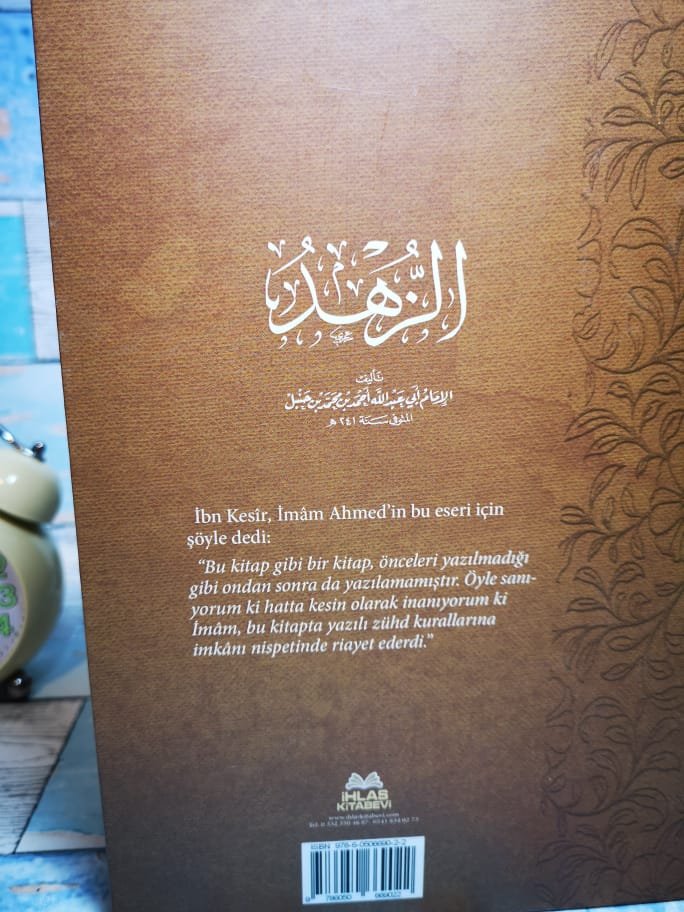 الزُّهْدُ
تأليف
الإمام أبي عبد الله أحمد بن محمد بن حنبل
المتوفى سنة ٢٤١ هـ
İbn Kesîr, İmâm Ahmed’in bu eseri için
şöyle dedi:
“Bu kitap gibi bir kitap, önceleri yazılmadığı
gibi ondan sonra da yazılamamıştır. Öyle sanı-
yorum ki hatta kesin olarak inanıyorum ki
İmâm, bu kitapta yazılı zühd kurallarına
imkânı nispetinde riayet ederdi.”
İHLAS
KİTABEVİ
www.ihlaskitabevi.com
ISBN 978-6-0506690-2-2
9 786050 669022
3
4